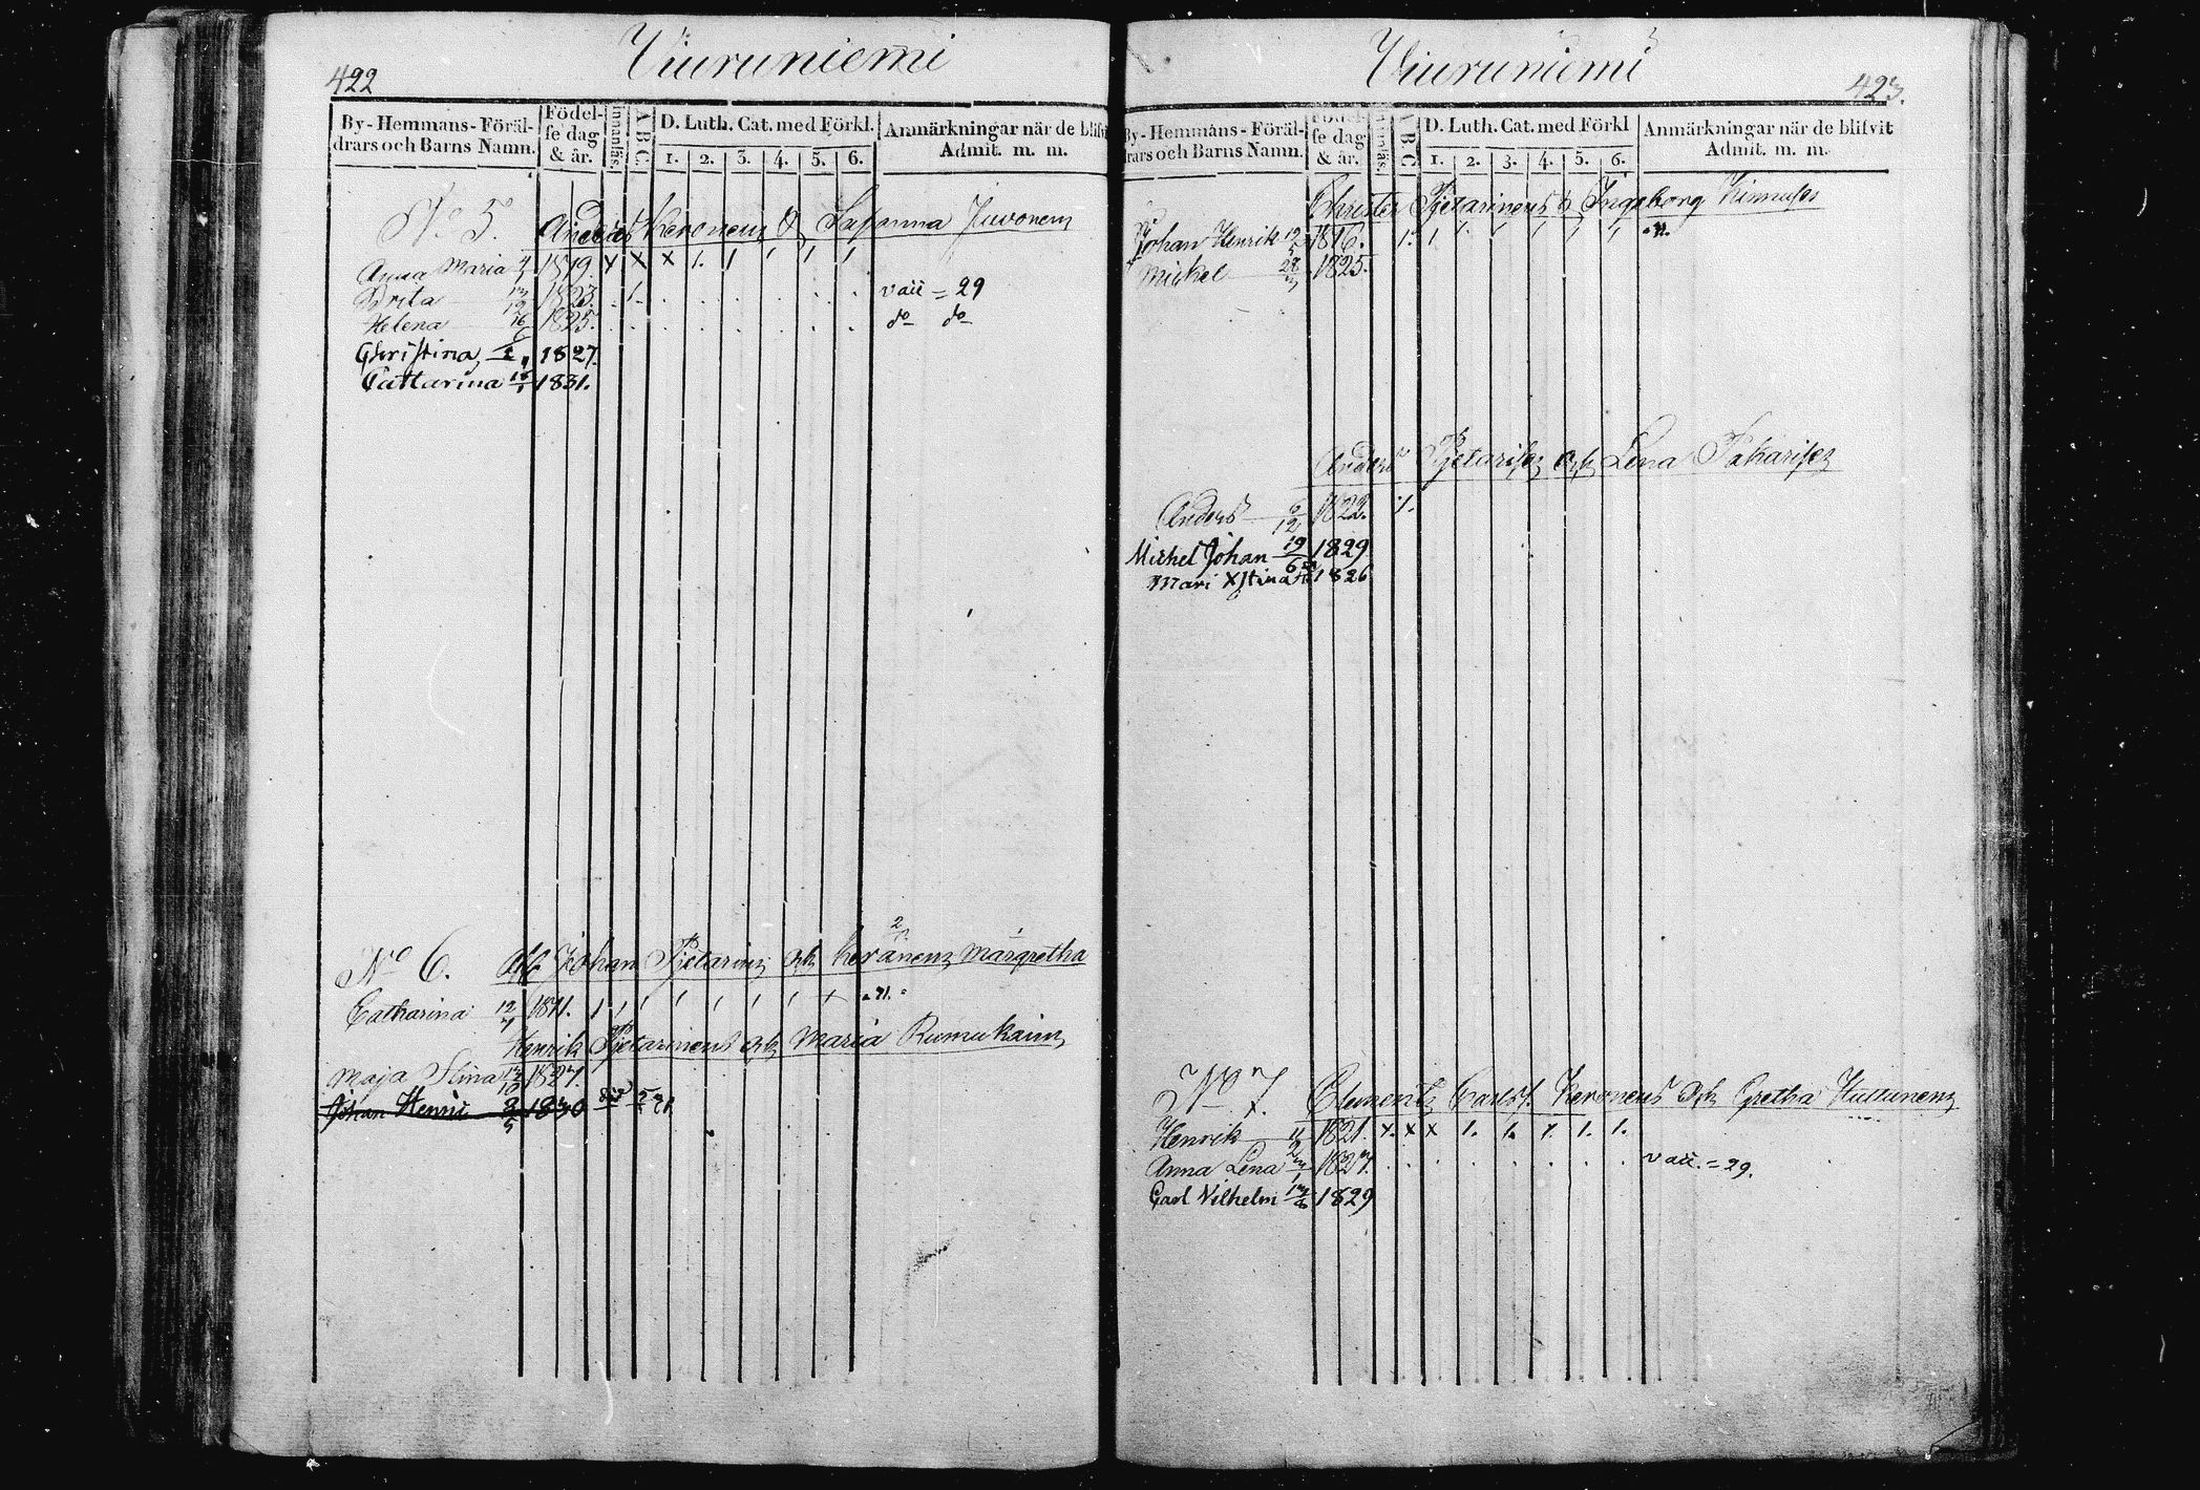 422
Viuruniemi
By-Hemmans-Föräl-
drars och Barns Namn.
Födel-
se dag
& år.
Innanläs.
A B C
D. Luth. Cat. med Förkl.
1. 2. 3. 4. 5. 6.
Anmärkningar när de blifvit
Admit. m. m.
No 5. Anders Keronens & Susanna Juvonen
Anna Maria 1819. x x x 1. 1 1 1 1
Brita 1823. 1. vaii = 29
Helena 1825. do do
Christina 1827.
Cattarina 1831.
No 6. Johan Pjetarinen och Keränen Margretha
Catharina 12/7 1811. 1 1 1 1 1 1 1 +
Henrik Pjetarinens och Maria Rumukain
Maja Stina 1827.
Johan Henric 1830
Viuruniemi
423.
By-Hemmans-Föräl-
drars och Barns Namn.
Födel-
se dag
& år.
Innanläs.
A B C
D. Luth. Cat. med Förkl
1. 2. 3. 4. 5. 6.
Anmärkningar när de blifvit
Admit. m. m.
Christer Pjetarinens & Ingeborg Kinnusen
Johan Henrik 1816. 1. 1 1 1 1 1 1
Mickel 1825.
Anders Pjetarisen och Lena Sakarisen
Anders 6/12 1822. 1.
Michel Johan 19/6 1829
Mari Xstina 1826
No 7. Clemens Carlss. Keronens och Gretha Huttunen
Henrik 1821. x. x x 1. 1. 1. 1. 1.
Anna Lena 1827. vaii. = 29.
Carl Vilhelm 1829